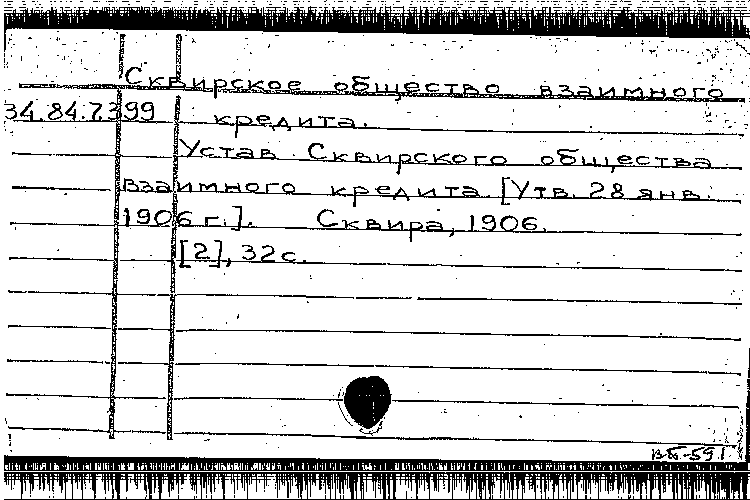 Сквирское общество взаимного
34.84.7.399 кредита.
Устав Сквирского общества
взаимного кредита [Утв. 28 янв.
1906 г.]. Сквира, 1906.
[2], 32 с.